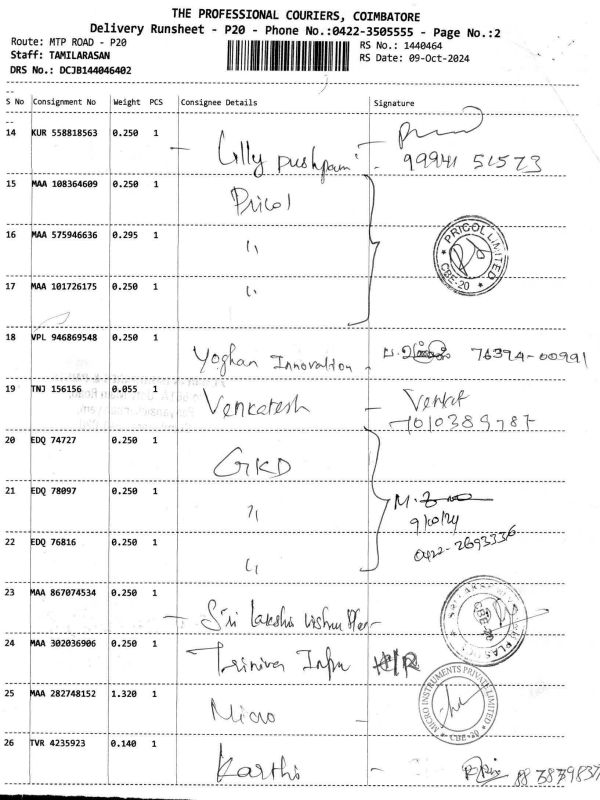 THE PROFESSIONAL COURIERS, COIMBATORE
Delivery Runsheet - P20 - Phone No.:0422-3505555 - Page No.:2
Route: MTP ROAD - P20
RS No.: 1440464
Staff: TAMILARASAN
RS Date: 09-Oct-2024
DRS No.: DCJB144046402
S No Consignment No Weight PCS Consignee Details Signature
14 KUR 558818563 0.250 1
Lilly pushpam
99941 51573
15 MAA 108364609 0.250 1
Pricol
16 MAA 575946636 0.295 1
"
PRICOL LIMITED
CBE-20
17 MAA 101726175 0.250 1
"
18 VPL 946869548 0.250 1
Yoghan Innovation 76394-00991
19 TNJ 156156 0.055 1
Venkatesh - Venkat
7010389787
20 EDQ 74727 0.250 1
GKD
21 EDQ 78097 0.250 1
"
9/10/24
22 EDQ 76816 0.250 1
"
0422-2693336
23 MAA 867074534 0.250 1
Sri Lakshmi
24 MAA 302036906 0.250 1
Infra
25 MAA 282748152 1.320 1
Micro
MICRO INSTRUMENTS PRIVATE LIMITED
CBE-20
26 TVR 4235923 0.140 1
Karthi